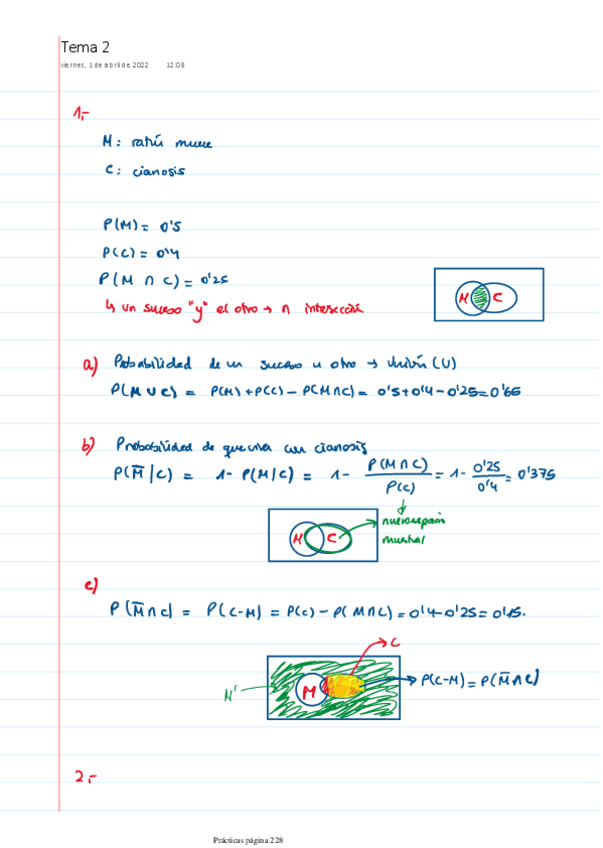 Tema 2
viernes, 1 de abril de 2022 12:03
1.-
M: ratón muere
C: cianosis
P(M) = 0'5
P(C) = 0'4
P(M ∩ C) = 0'25
↳ un suceso "y" el otro → ∩ intersección
M C
a) Probabilidad de un suceso u otro → Unión (U)
P(M ∪ C) = P(M) + P(C) - P(M∩C) = 0'5 + 0'4 - 0'25 = 0'65
b) Probabilidad de que viva con cianosis
P(M̅ | C) = 1 - P(M | C) = 1 - P(M∩C) / P(C) = 1 - 0'25 / 0'4 = 0'375
nuevo espacio
muestral
M C
c)
P(M̅∩C) = P(C-M) = P(C) - P(M∩C) = 0'4 - 0'25 = 0'15.
C
M' M → P(C-M) = P(M̅∩C)
2.-
Prácticas página 228